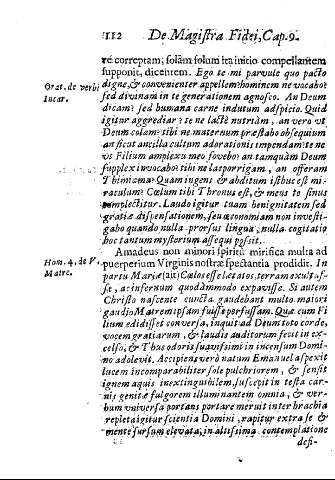 112 De Magistra Fidei, Cap. 9.
re correptam, solam solum ita initio compellantem
supponit, dicentem. Ego te mi parvule quo pacto
Grat. de verbi digne, & convenienter appellem? hominem ne vocabo?
sed divinam in te generationem agnosco. An Deum
dicam? sed humana carne indutum adspicio. Quid
igitur aggrediar? te ne lacte nutriam, an vero ut
Deum colam? tibi ne maternum præstabo obsequium
an sicut ancilla cultum adorationis impendam? te ne
vs Filium amplexu meo fovebo? an tamquàm Deum
supplex invocabo? tibi ne lac porrigam, an offeram
Thimiama? Quam ingens & abditum istbuc est mi-
raculum? Cœlum tibi Thronus est, & meus te sinus
complectitur. Laudo igitur tuam benignitatem sed
gratiæ dispensationem, seu œconomiam non investi-
gabo quando nulla prorsus lingua, nulla cogitatio
hoc tantum mysterium assequi possit.
Hom. 4. de V. Matre.
Amadeus non minori spiritu mirifica multa ad
puerperium Virginis nostræ spectantia prodidit. In
partu Mariæ (ait) Cœlos esse lætatos, terram exultas-
se, ac infernum quodammodo expavisse. Si autem
Christo nascente cuncta gaudebant multo maiori
gaudio Matrem ipsam fuisse perfussam. Quæ cum Fi
lium edidisset conversa, inquit ad Deum toto corde,
vocem gratiarum, & laudis auditorum fecit in ex-
celso, & Thus odoris suavissimi in incensum Domi-
no adolevit. Accipiens verò natum Emanuel aspexit
lucem incomparabiliter sole pulchriorem, & sensit
ignem aquis inextinguibilem, suscepit in testa car-
nis genitæ fulgorem illuminantem omnia, & ver-
bum vniversa portans portare meruit inter brachia
repleta igitur scientia Domini, rapitur extra se &
mente sursum elevata, in altissima contemplatione
defi-